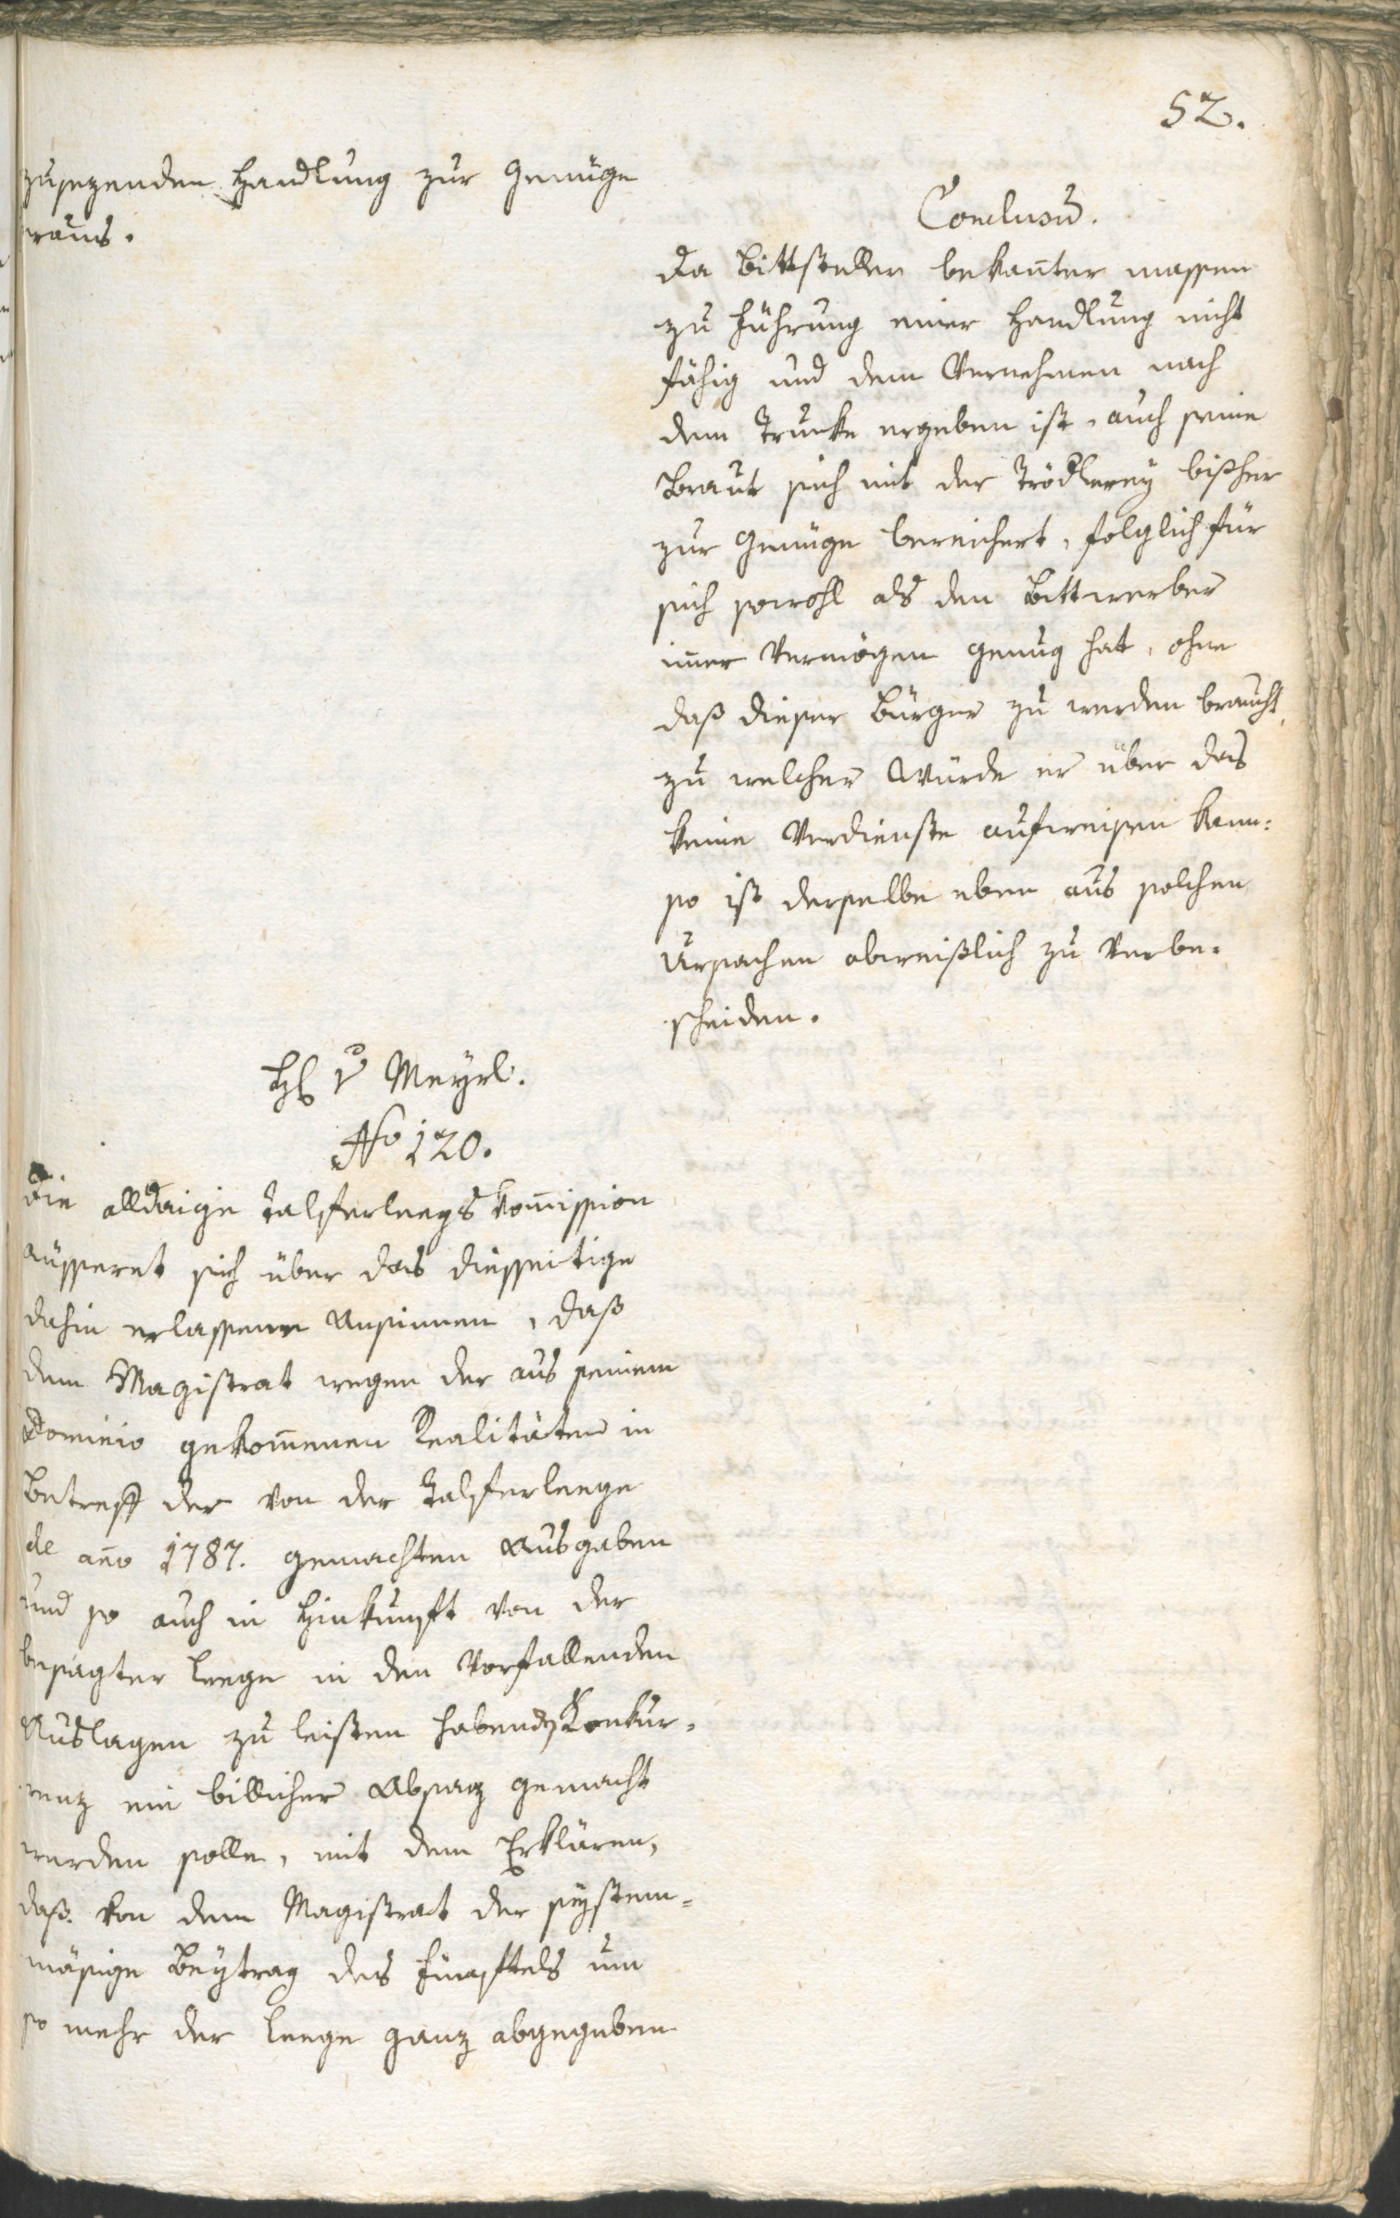 52.
zusezenden Handlung zur Genüge
wäus.
Conclusũ.
Da Bittsteller bekañter massen
zu Führung einer Handlung nicht
fähig und dem Vernehmen nach
dem Trunke ergeben ist, auch seine
Braut sich mit der Trödlerey bißher
zur Genüge bereichert, folglich für
sich sowohl als den Bittwerber
im̃er Vermögen genug hat, ohne
daß dieser Bürger zu werden braucht,
zu welcher Würde er über das
keine Verdienste aufweisen kann:
so ist derselbe eben aus solchen
Ursachen abweißlich zu verbe-
scheiden.
H v Meyrl.
No 120.
Die alldaige Talferleegs Kom̃ission
äusseret sich über das diesseitige
dahin erlassene Ansinnen, daß
dem Magistrat wegen der aus seinem
Dominio gekom̃enen Realitäten in
Betreff der von der Talferleege
de año 1787. gemachten Ausgaben
und so auch in Hinkunft von der
besagter Leege in den vorfallenden
Auslagen zu leisten habenden Konkur-
renz ein billicher Absaz gemacht
werden solle, mit dem Erklären,
daß von dem Magistrat der system-
mäsige Beytrag des Fünftels um
so mehr der Leege ganz abgegeben